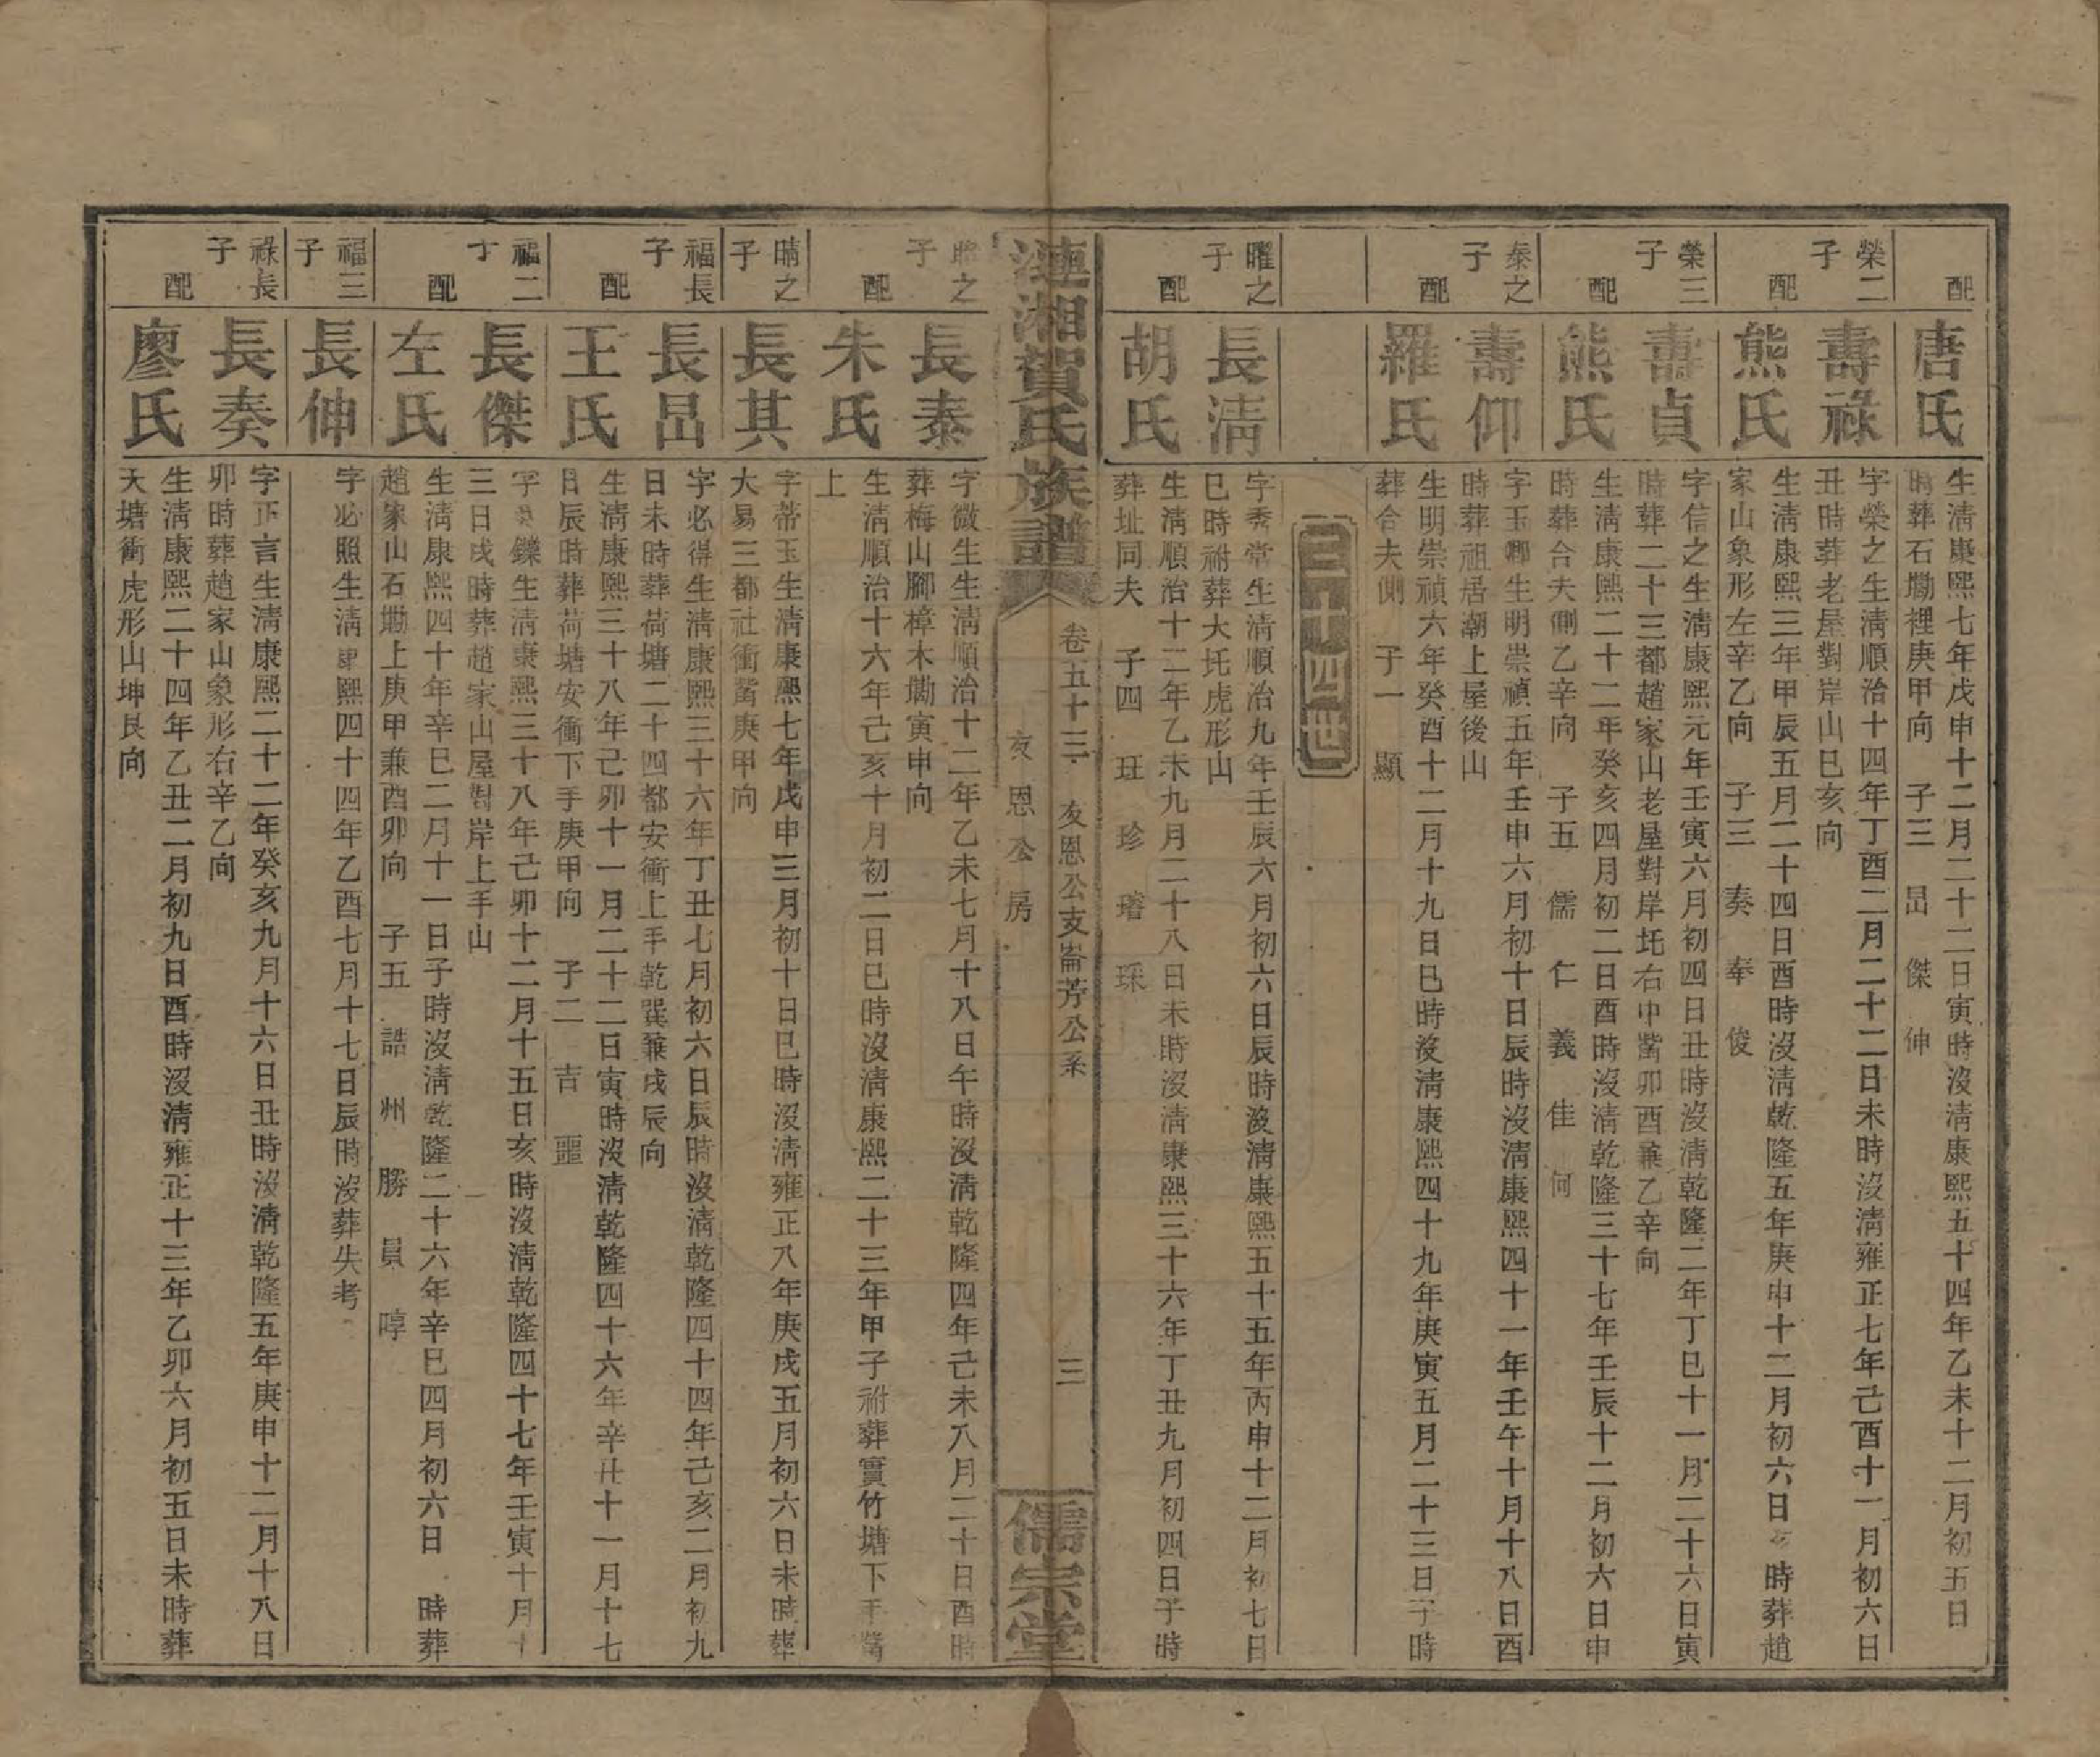 配
唐氏
生淸康熙七年戊申十二月二十二日寅時沒淸康熙五十四年乙未十二月初五日
時葬石墈裡庚甲向 子三 昌 傑 伸
榮二子
壽祿
字榮之生淸順治十四年丁酉二月二十二日未時沒淸雍正七年己酉十一月初六日
丑時葬老屋對岸山巳亥向
配
熊氏
生淸康熙三年甲辰五月二十四日酉時沒淸乾隆五年庚申十二月初六日亥時葬趙
家山象形左辛乙向 子三 奏 奉 俊
榮三子
壽貞
字信之生淸康熙元年壬寅六月初四日丑時沒淸乾隆二年丁巳十一月二十六日寅
時葬二十三都趙家山老屋對岸圫右中嘴卯酉兼乙辛向
配
熊氏
生淸康熙二十二年癸亥四月初二日酉時沒淸乾隆三十七年壬辰十二月初六日申
時葬合夫側乙辛向 子五 儒 仁 義 佳 何
泰之子
壽仰
字玉卿生明崇禎五年壬申六月初十日辰時沒淸康熙四十一年壬午十月十八日酉
時葬祖居潮上屋後山
配
羅氏
生明崇禎六年癸酉十二月十九日巳時沒淸康熙四十九年庚寅五月二十三日子時
葬合夫側 子一 顯
二十四世
曜之子
長淸
字秀常生淸順治九年壬辰六月初六日辰時沒淸康熙五十五年丙申十二月初七日
巳時祔葬大圫虎形山
配
胡氏
生淸順治十二年乙未九月二十八日未時沒淸康熙三十六年丁丑九月初四日子時
葬址同夫 子四 玨 珍 璿 琛
漣湘賀氏族譜
卷五十三 友恩公支崙芳公系 三
友恩公房
儒宗堂
昭之子
長泰
字微生生淸順治十二年乙未七月十八日午時沒淸乾隆四年己未八月二十日酉時
葬梅山腳樟木墈寅申向
配
朱氏
生淸順治十六年己亥十月初二日巳時沒淸康熙二十三年甲子祔葬實竹塘下手嘴
上
晴之子
長其
字蒂玉生淸康熙七年戊申三月初十日巳時沒淸雍正八年庚戌五月初六日未時葬
大易三都社衝嘴庚甲向
福長子
長昌
字必得生淸康熙三十六年丁丑七月初六日辰時沒淸乾隆四十四年己亥二月初九
日未時葬荷塘二十四都安衝上手乾巽兼戌辰向
配
王氏
生淸康熙三十八年己卯十一月二十二日寅時沒淸乾隆四十六年辛丑十一月十七
日辰時葬荷塘安衝下手庚甲向 子二 吉 噩
福二子
長傑
字英鑠生淸康熙三十八年己卯十二月十五日亥時沒淸乾隆四十七年壬寅十月十
三日戌時葬趙家山屋對岸上手山
配
左氏
生淸康熙四十年辛巳二月十一日子時沒淸乾隆二十六年辛巳四月初六日 時葬
趙家山石墈上庚甲兼酉卯向 子五 誥 州 勝 員 啍
福三子
長伸
字必照生淸康熙四十四年乙酉七月十七日辰時沒葬失考
祿長子
長奏
字正言生淸康熙二十二年癸亥九月十六日丑時沒淸乾隆五年庚申十二月十八日
卯時葬趙家山象形右辛乙向
配
廖氏
生淸康熙二十四年乙丑二月初九日酉時沒淸雍正十三年乙卯六月初五日未時葬
天塘衝虎形山坤艮向